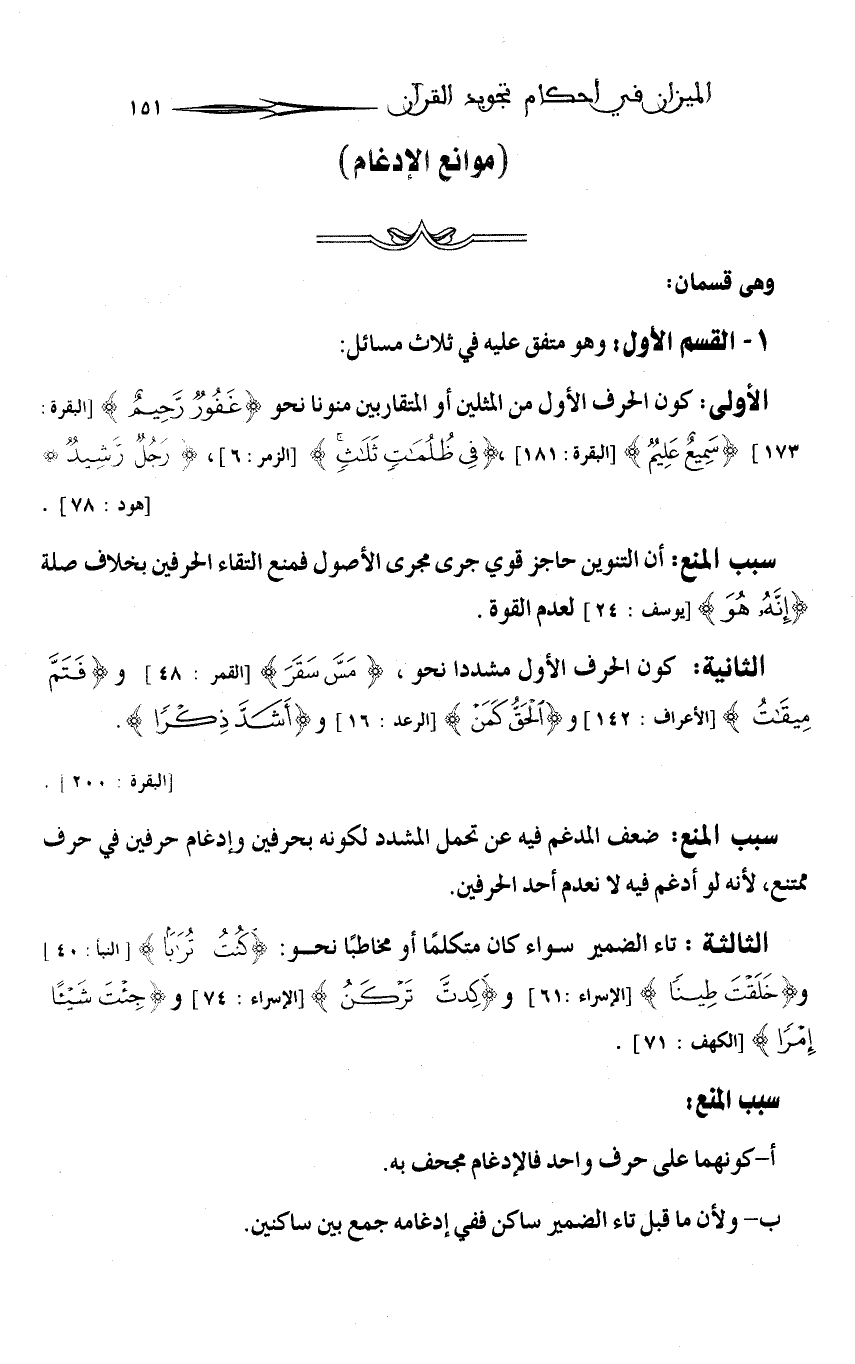 الميزان في أحكام تجويد القرآن ١٥١
(موانع الإدغام)
وهى قسمان:
١- القسم الأول: وهو متفق عليه في ثلاث مسائل:
الأولى: كون الحرف الأول من المثلين أو المتقاربين منونا نحو ﴿غَفُورٌ رَّحِيمٌ﴾ [البقرة:
١٧٣] ﴿سَمِيعٌ عَلِيمٌ﴾ [البقرة: ١٨١] ، ﴿فِي ظُلُمَٰتٍ ثَلَٰثٍ﴾ [الزمر: ٦] ، ﴿رَجُلٌ رَّشِيدٌ﴾
[هود : ٧٨] .
سبب المنع: أن التنوين حاجز قوي جرى مجرى الأصول فمنع التقاء الحرفين بخلاف صلة
﴿إِنَّهُۥ هُوَ﴾ [يوسف : ٢٤] لعدم القوة .
الثانية: كون الحرف الأول مشددا نحو ، ﴿مَسَّ سَقَرَ﴾ [القمر : ٤٨] و ﴿فَتَمَّ
مِيقَٰتُ﴾ [الأعراف : ١٤٢] و ﴿ٱلْحَقُّ كَمَنْ﴾ [الرعد : ١٦] و ﴿أَشَدَّ ذِكْرًا﴾ .
[البقرة : ٢٠٠] .
سبب المنع: ضعف المدغم فيه عن تحمل المشدد لكونه بحرفين وإدغام حرفين في حرف
ممتنع، لأنه لو أدغم فيه لا نعدم أحد الحرفين.
الثالثة : تاء الضمير سواء كان متكلمًا أو مخاطبًا نحو: ﴿كُنتُ تُرَٰبًا﴾ [النبأ : ٤٠]
و﴿خَلَقْتَ طِينًا﴾ [الإسراء :٦١] و ﴿كِدتَّ تَرْكَنُ﴾ [الإسراء : ٧٤] و ﴿جِئْتَ شَيْـًٔا
إِمْرًا﴾ [الكهف : ٧١] .
سبب المنع:
أ-كونهما على حرف واحد فالإدغام مجحف به.
ب- ولأن ما قبل تاء الضمير ساكن ففي إدغامه جمع بين ساكنين.